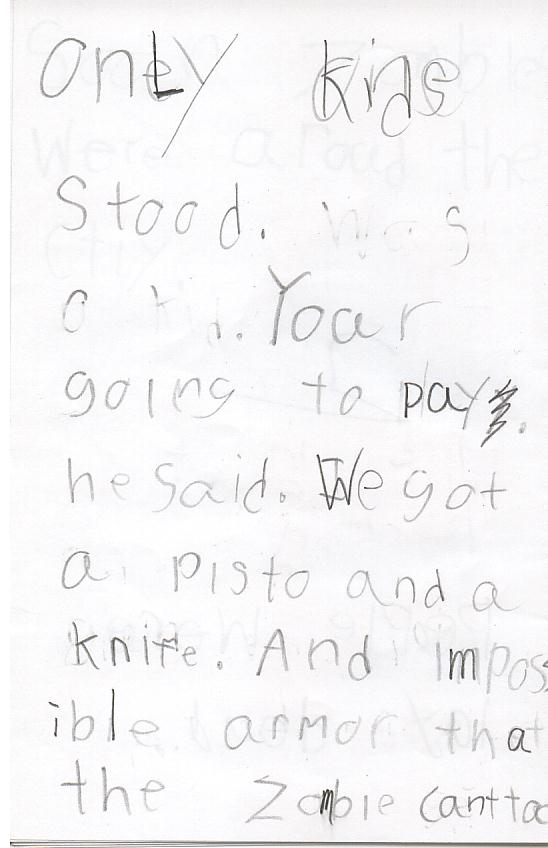 only kids
stood. Was
a kid. Your
going to pay.
he said. We got
a pisto and a
knife. And impos
ible armor that
the Zombie canttac